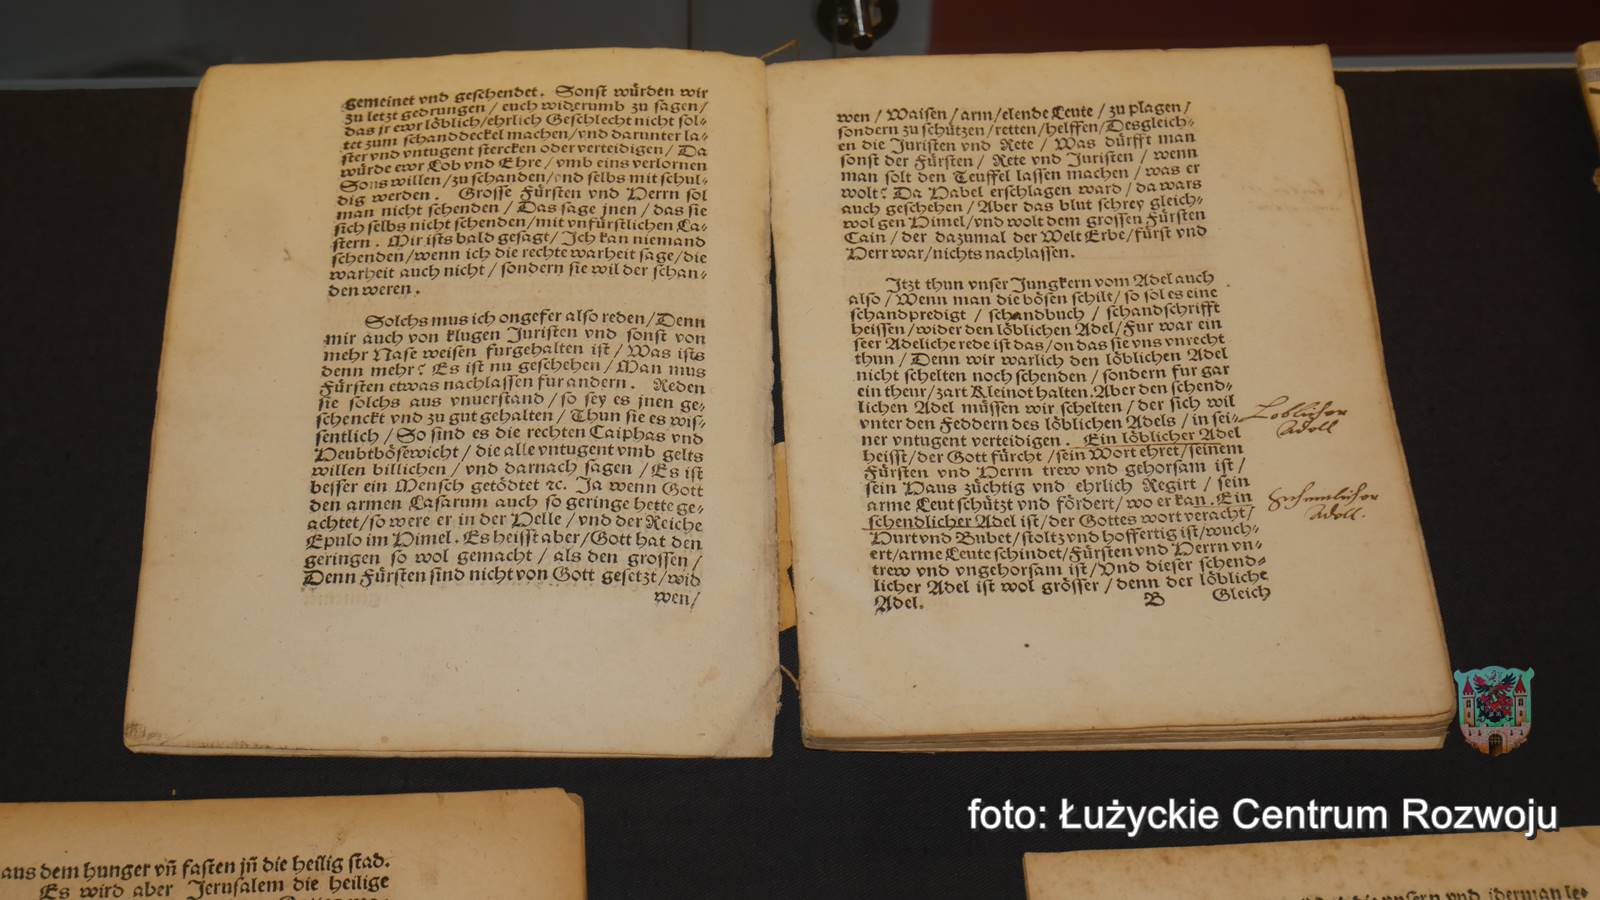 gemeinet vnd geschendet. Sonst würden wir
zu letzt gedrungen / euch widerumb zu sagen /
das jr ewr löblich / ehrlich Geschlecht nicht sol-
tet zum schanddeckel machen / vnd darunter la-
ster vnd vntugent stercken oder verteidigen / Da
würde ewr Lob vnd Ehre / vmb eins verlornen
Sons willen / zu schanden / vnd selbs mit schul-
dig werden. Grosse Fürsten vnd Herrn sol
man nicht schenden / Das sage jnen / das sie
sich selbs nicht schenden / mit vnfürstlichen La-
stern. Mir ists bald gesagt / Ich kan niemand
schenden / wenn ich die rechte warheit sage / die
warheit auch nicht / sondern sie wil der schan-
den weren.
Solchs mus ich ongefer also reden / Denn
mir auch von klugen Juristen vnd sonst von
mehr Nase weisen furgehalten ist / Was ists
denn mehr? Es ist nu geschehen / Man mus
Fürsten etwas nachlassen fur andern. Reden
sie solchs aus vnuerstand / so sey es jnen ge-
schenckt vnd zu gut gehalten / Thun sie es wis-
sentlich / So sind es die rechten Caiphas vnd
Heubtbösewicht / die alle vntugent vmb gelts
willen billichen / vnd darnach sagen / Es ist
besser ein Mensch getödtet ꝛc. Ja wenn Gott
den armen Lasarum auch so geringe hette ge-
achtet / so were er in der Helle / vnd der Reiche
Epulo im Himel. Es heisst aber / Gott hat den
geringen so wol gemacht / als den grossen /
Denn Fürsten sind nicht von Gott gesetzt / wid
wen /
wen / Waisen / arm / elende Leute / zu plagen /
sondern zu schützen / retten / helffen / Desgleich-
en die Juristen vnd Rete / Was dürfft man
sonst der Fürsten / Rete vnd Juristen / wenn
man solt den Teuffel lassen machen / was er
wolt? Da Habel erschlagen ward / da wars
auch geschehen / Aber das blut schrey gleich-
wol gen Himel / vnd wolt dem grossen Fürsten
Cain / der dazumal der Welt Erbe / fürst vnd
Herr war / nichts nachlassen.
Itzt thun vnser Jungkern vom Adel auch
also / Wenn man die bösen schilt / so sol es eine
schandpredigt / schandbuch / schandschrifft
heissen / wider den löblichen Adel / Fur war ein
seer Adeliche rede ist das / on das sie vns vnrecht
thun / Denn wir warlich den löblichen Adel
nicht schelten noch schenden / sondern fur gar
ein theur / zart Kleinot halten. Aber den schend-
lichen Adel müssen wir schelten / der sich wil
vnter den Feddern des löblichen Adels / in sei-
ner vntugent verteidigen. Ein löblicher Adel
heisst / der Gott fürcht / sein Wort ehret / seinem
Fürsten vnd Herrn trew vnd gehorsam ist /
sein Haus züchtig vnd ehrlich Regirt / sein
arme Leut schützt vnd fördert / wo er kan. Ein
schendlicher Adel ist / der Gottes wort veracht /
Hurt vnd Bubet / stoltz vnd hoffertig ist / wuch-
ert / arme Leute schindet / Fürsten vnd Herrn vn-
trew vnd vngehorsam ist / Vnd dieser schend-
licher Adel ist wol grösser / denn der löbliche
Adel.
B Gleich
Loblicher
Adell
Schendlicher
Adell.
foto: Łużyckie Centrum Rozwoju
aus dem hunger vñ fasten jñ die heilig stad.
Es wird aber Jerusalem die heilige
vnsern vnd jderman le-